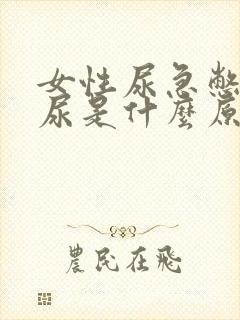 女性尿急憋
尿是什麼原
農民在飛